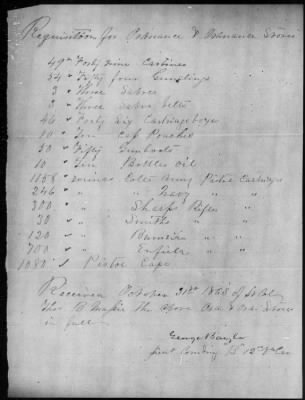 Requisition for Ordnance & Ordnance Stores
49 " Forty Nine Carbines
54 " Fifty four Gunslings
3 " Three Sabres
3 " Three Sabre belts
46 " Forty six Cartridge boxes
10 " Ten Cap Pouches
50 " Fifty
10 " Ten Bottles Oil
1158 " Colts Army Pistol Cartridges
246 " " Navy " "
300 " " Sharps Rifles "
30 " " Smiths " "
120 " " Burnside " "
700 " " Enfield " "
1088 " Pistol Caps
Received October 31st 1863 of Lt Col
Thos B Massie the above Ord & Ord Stores
in full
George
Lieut Comdg 12th Va Cav